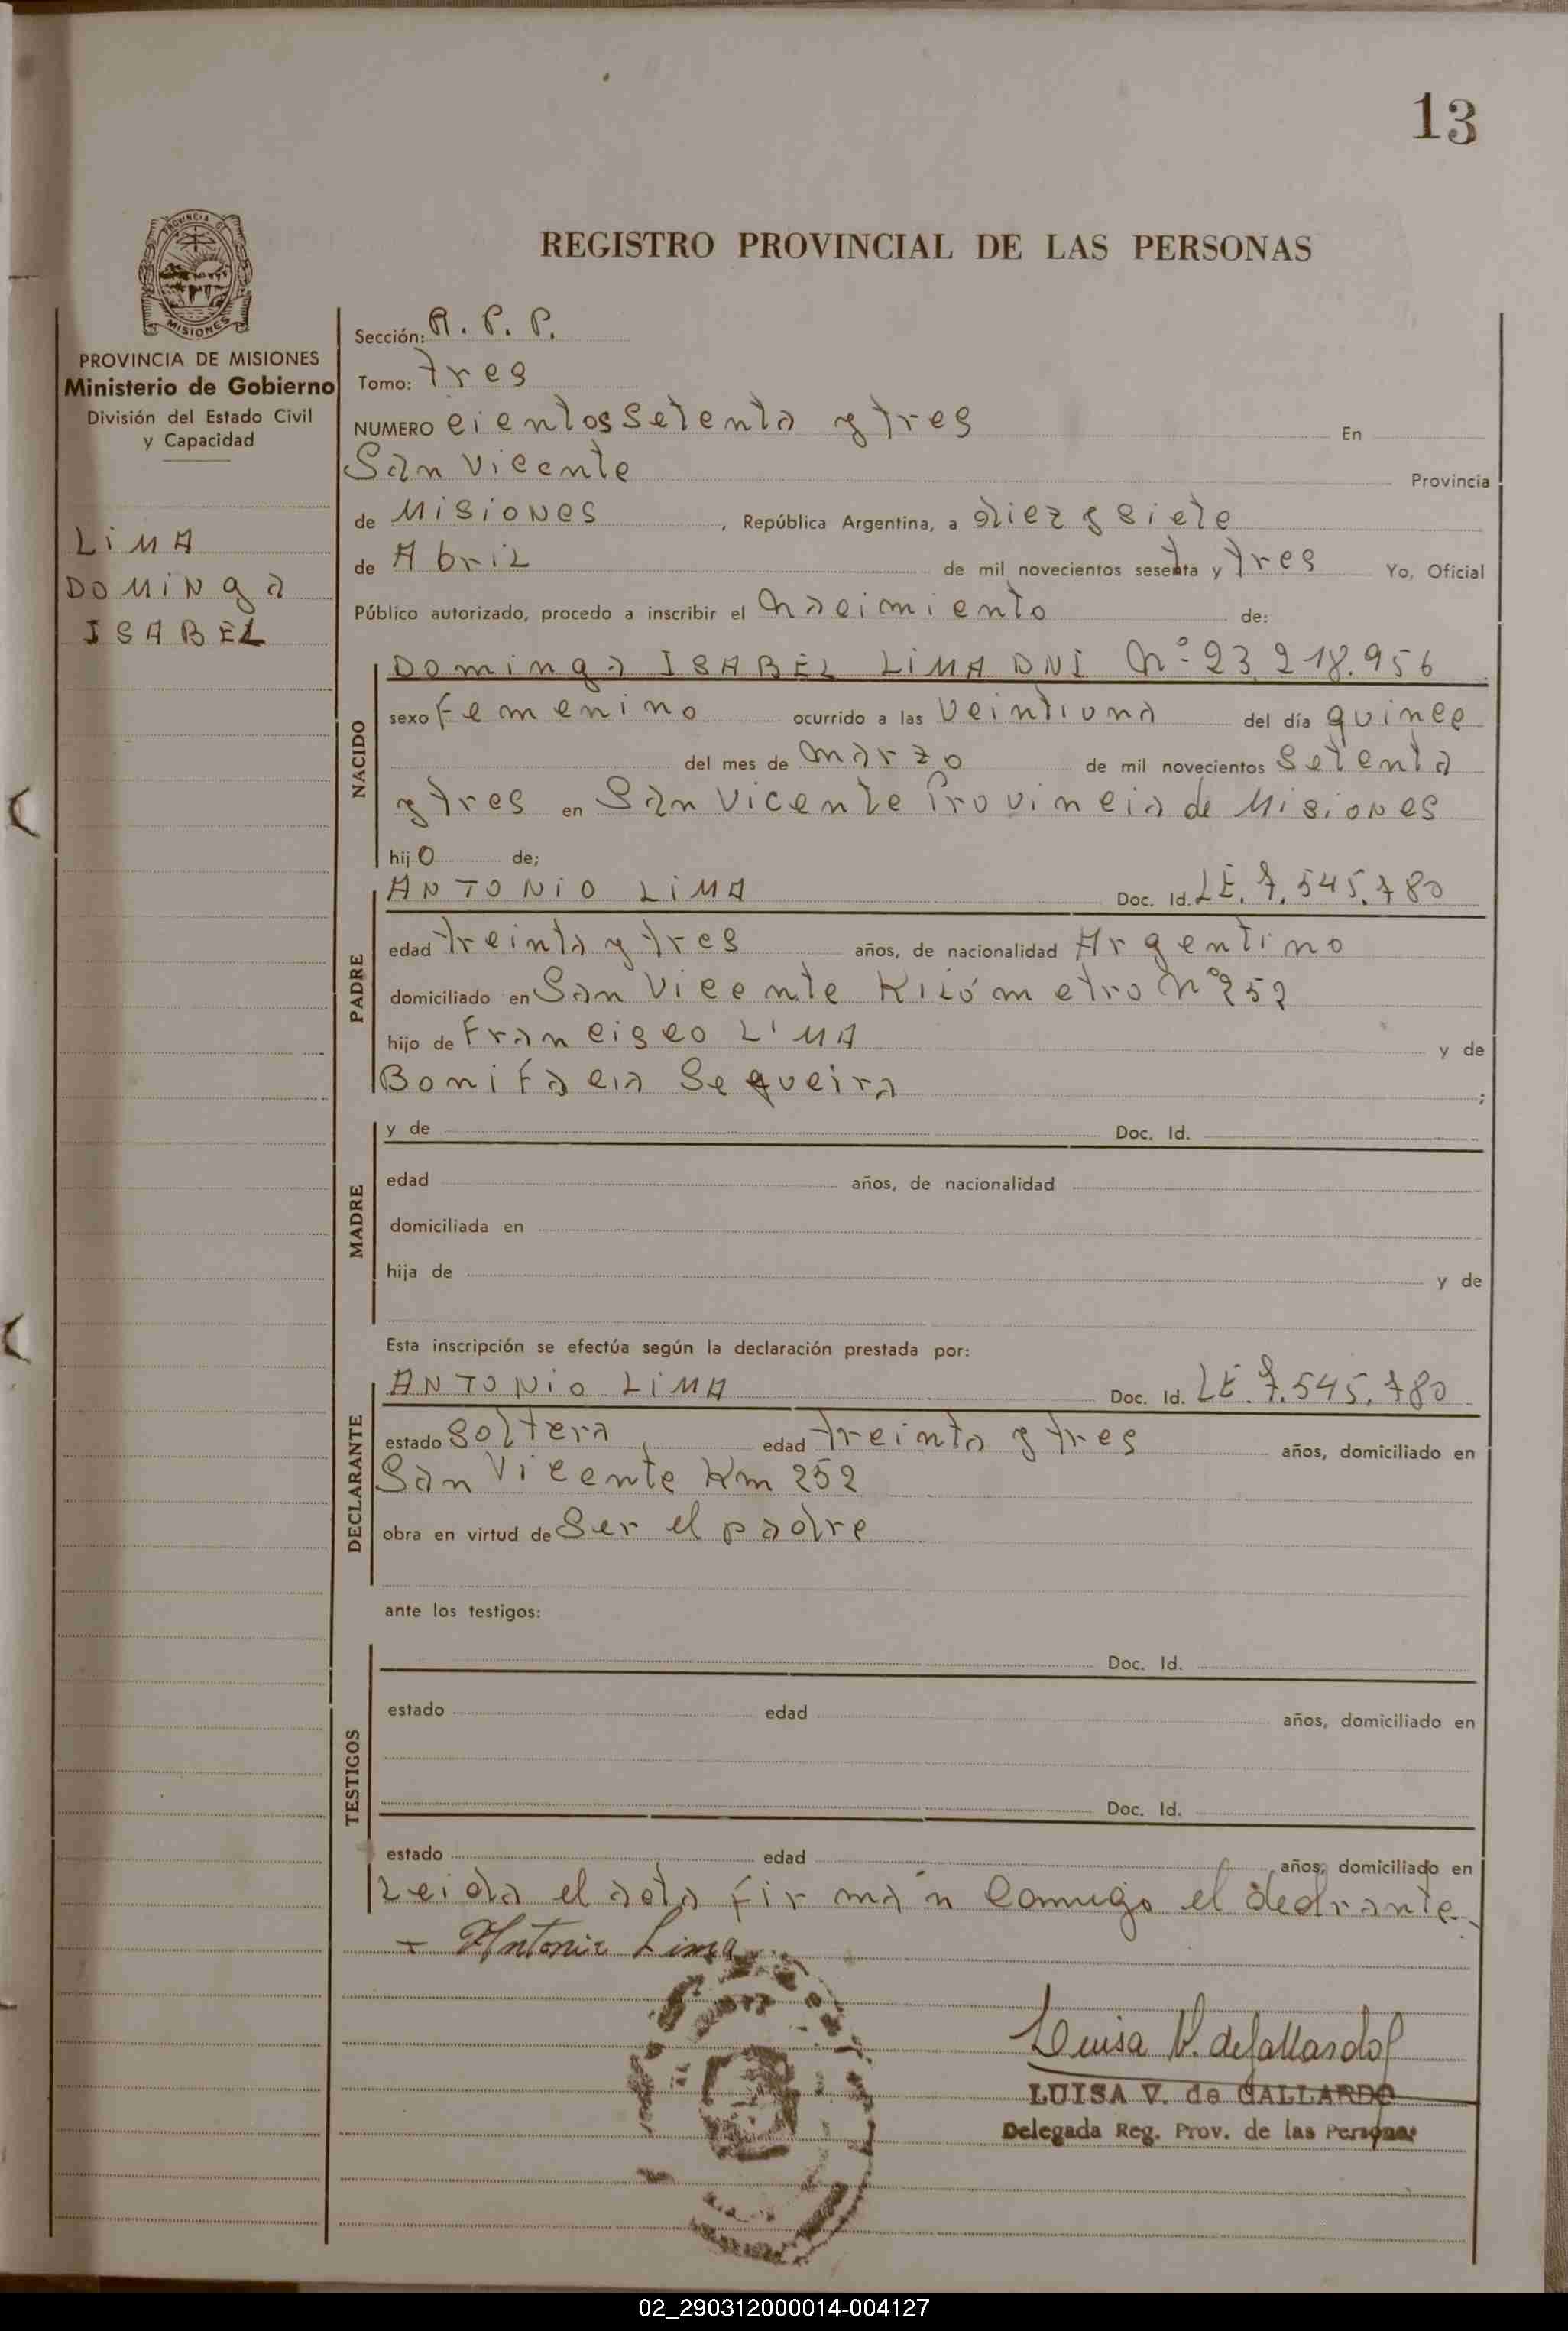 13
PROVINCIA
MISIONES
REGISTRO PROVINCIAL DE LAS PERSONAS
PROVINCIA DE MISIONES
Ministerio de Gobierno
División del Estado Civil
y Capacidad
LiMA
DOMiNga
ISABEL
Sección: R. P. P.
Tomo: tres
NUMERO cientos setenta y tres En
San Vicente Provincia
de Misiones, República Argentina, a diez y siete
de Abril de mil novecientos sesenta y tres Yo, Oficial
Público autorizado, procedo a inscribir el nacimiento de:
NACIDO
Dominga ISABEL LiMA DNI Nº 23.218.956
sexo femenino ocurrido a las veintiuna del día quince
del mes de marzo de mil novecientos setenta
y tres en San Vicente Provincia de Misiones
hijo de;
PADRE
ANTONiO LiMA Doc. Id. LE. 7.545.780
edad treinta y tres años, de nacionalidad Argentino
domiciliado en San Vicente Kilómetro Nº 252
hijo de Francisco LiMA y de
Bonifacia Sequeira ;
MADRE
y de Doc. Id.
edad años, de nacionalidad
domiciliada en
hija de y de
Esta inscripción se efectúa según la declaración prestada por:
DECLARANTE
ANTONiO LiMA Doc. Id. LE. 7.545.780
estado soltera, edad treinta y tres años, domiciliado en
San Vicente Km 252
obra en virtud de Ser el padre
ante los testigos:
TESTIGOS
Doc. Id.
estado edad años, domiciliado en
Doc. Id.
estado edad años, domiciliado en
Leida el acta firmán comigo el declrante
Antonio Lima
Luisa V. de Gallardo
LUISA V. de GALLARDO
Delegada Reg. Prov. de las Personas
02_290312000014-004127